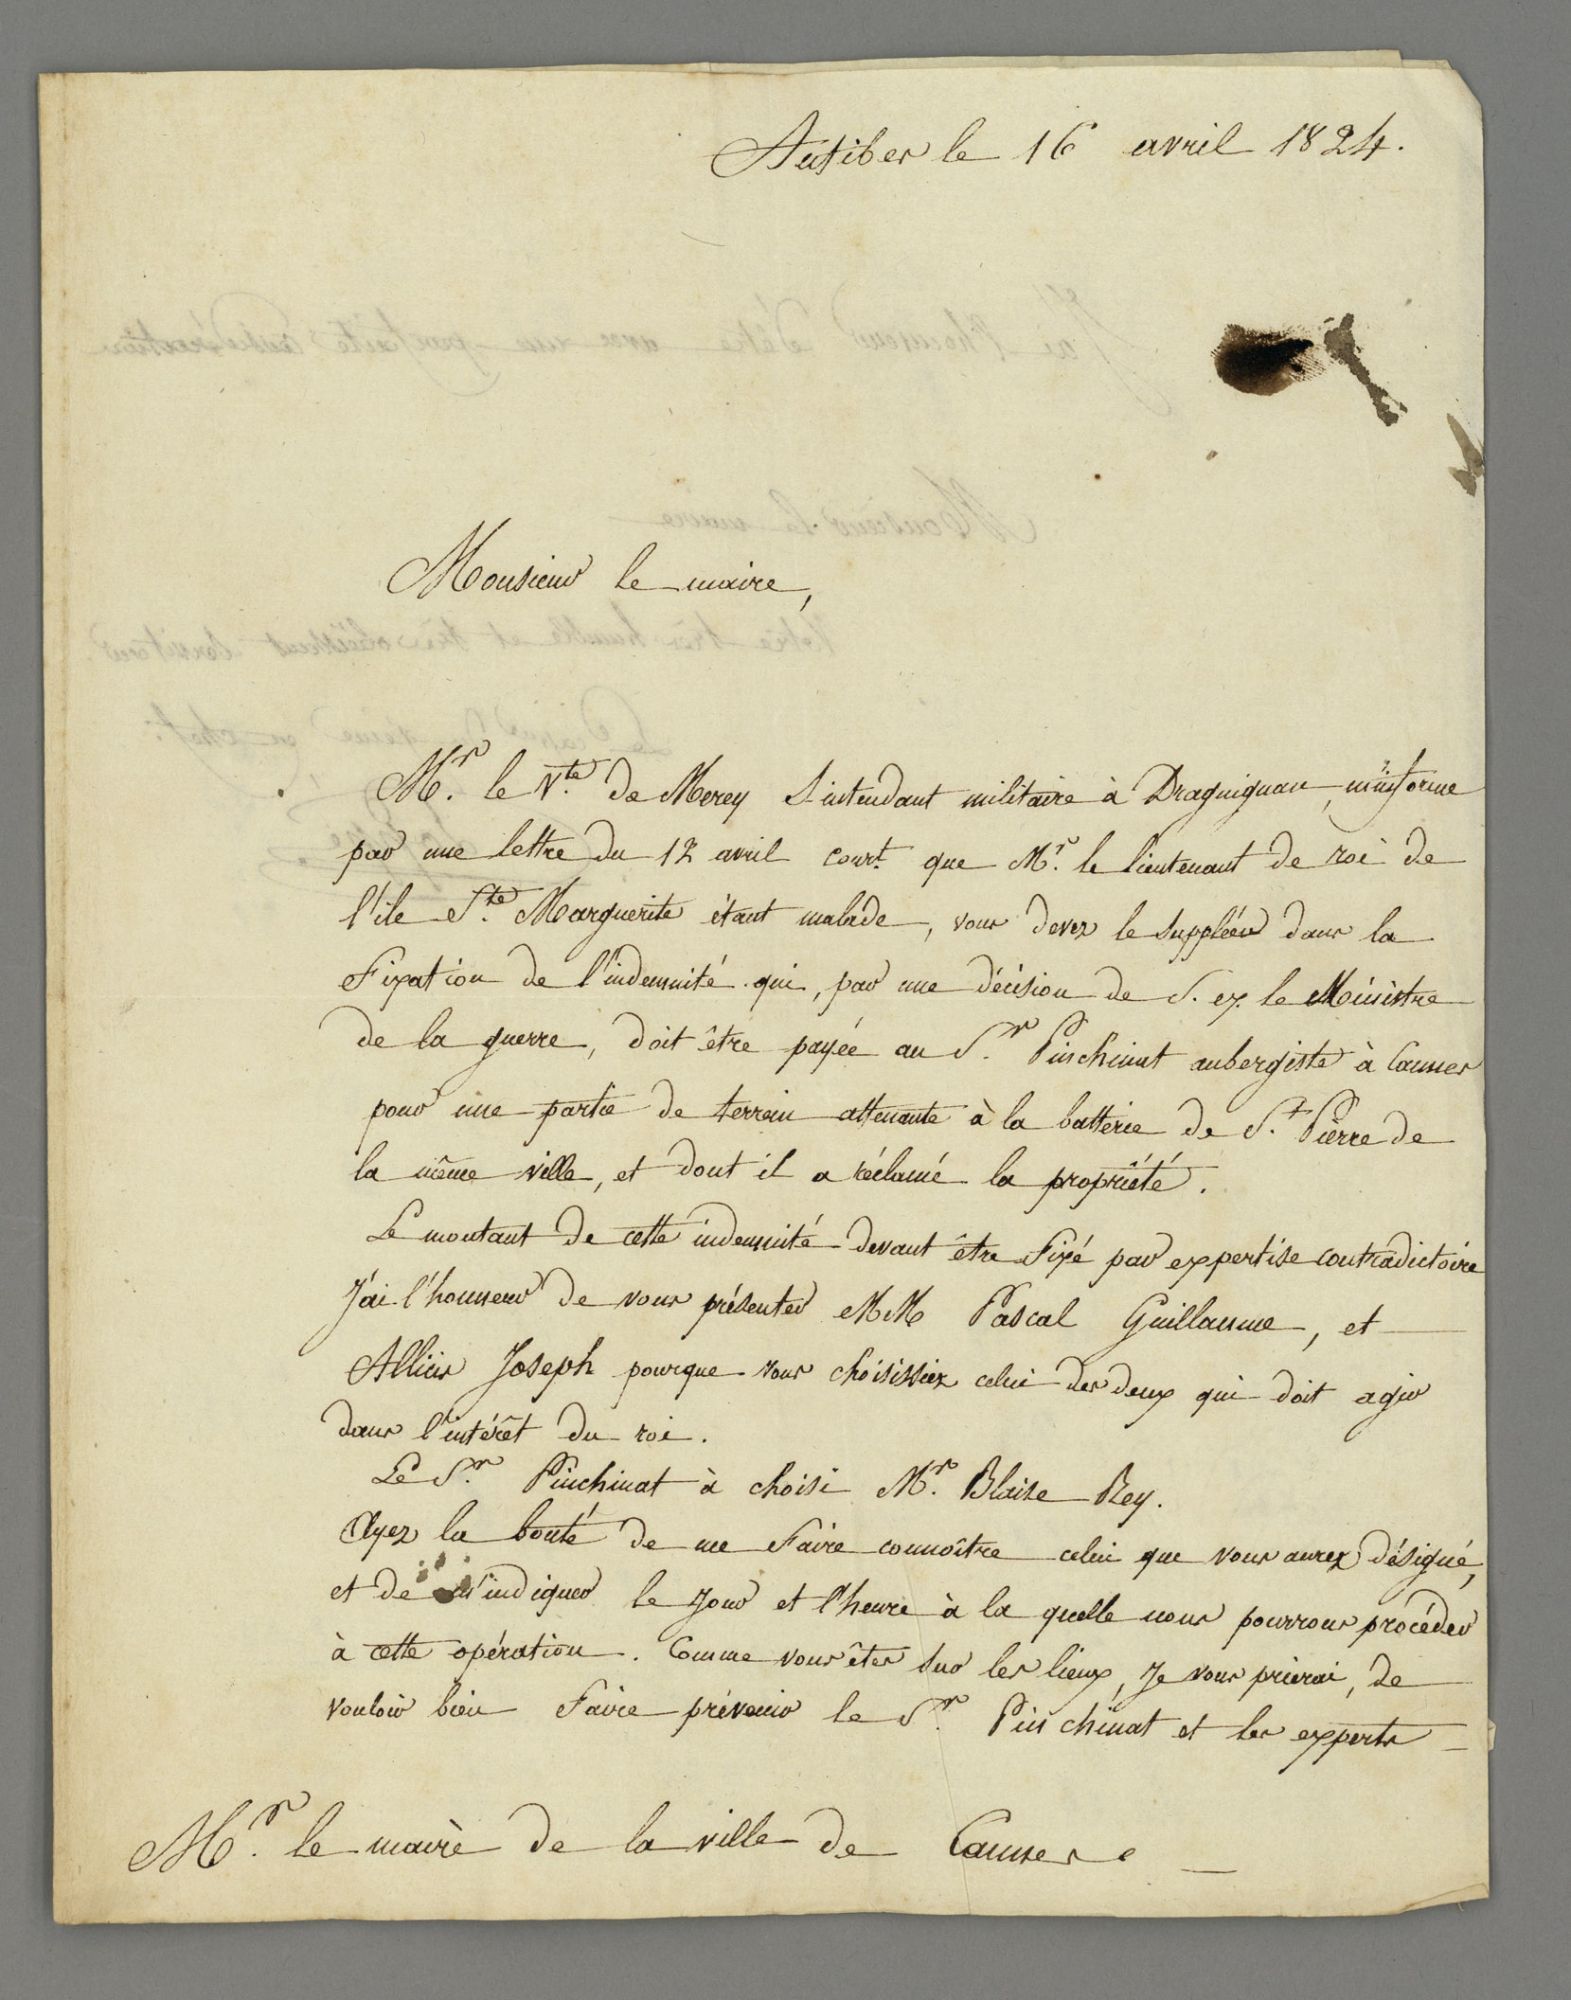 Antibes le 16 avril 1824.
Monsieur le maire,
Mr. le Vte. de Merey S. intendant militaire à Draguignan, m'informe
par une lettre du 12 avril Court. que Mr. le lieutenant de roi de
l'ile Ste. Marguerite étant malade, vous devez le suppléer dans la
Fixation de l'indemnité qui, par une décision de S. ex. le Ministre
de la guerre, doit être payée au Sr. Pinchinat aubergiste à Cannes
pour une partie de terrein attenante à la batterie de St. Pierre de
la même ville, et dont il a réclamé la propriété.
Le montant de cette indemnité devant être Fixé par expertise contradictoire
J'ai l'honneur de vous présenter MM Pascal Guillaume, et
Alliès Joseph pourque vous choisissiez celui des deux qui doit agir
dans l'intérêt du roi.
Le Sr. Pinchinat à choisi Mr. Blaise Rey.
Ayez la bonté de me Faire connoître celui que vous aurez désigné,
et de m'indiquer le Jour et l'heure à la quelle nous pourrons procéder
à cette opération. Comme vous êtes sur les lieux, Je vous prierai, de
vouloir bien Faire prévenir le Sr. Pinchinat et les experts
Mr. le maire de la ville de Cannes.